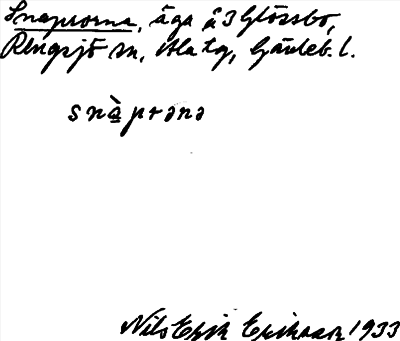 Snaprorna, äga å 3 Glössbo,
Rengsjö sn, Ala tg, Gävleb. l.
snàprǝnǝ
Nils Erik Eriksson 1933